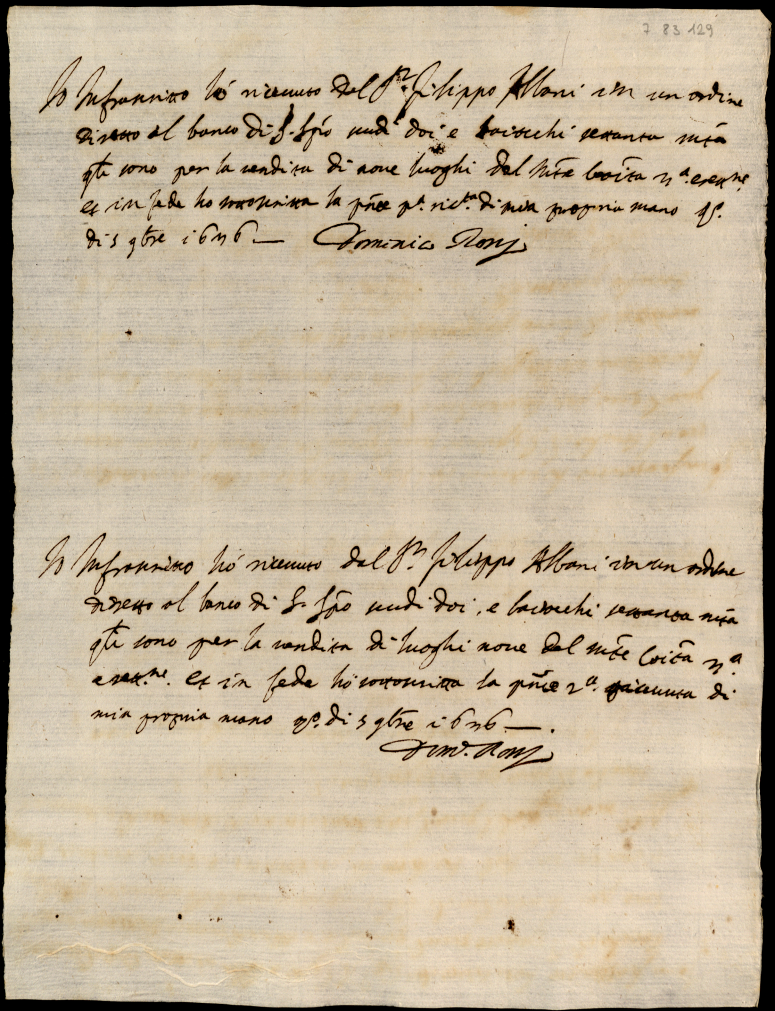 7 83 129
Io Infrascritto hò riceuuto dal Sr. Filippo Albani in un ordine
diretto al banco di S. Spto scudi doi e baiocchi settanta mta
qli sono per la uendita di noue luoghi del Mte Comta 2a. erettne.
et in fede ho sottoscritta la pnte pa. ricta. di mia propria mano qo.
di 5 9bre 1656 — Domenico Ronj
Io Infrascritto hò riceuuto dal Sr. Filippo Albani in un ordine
diretto al banco di S. Spto scudi doi, e baiocchi settanta mta
qli sono per la uendita di luoghi noue del Mte Comta 2a
erettne. et in fede hò sottoscritta la pnte 2a. riceuuta di
mia propria mano qo. di 5 9bre 1656 —.
Domo. Ronj